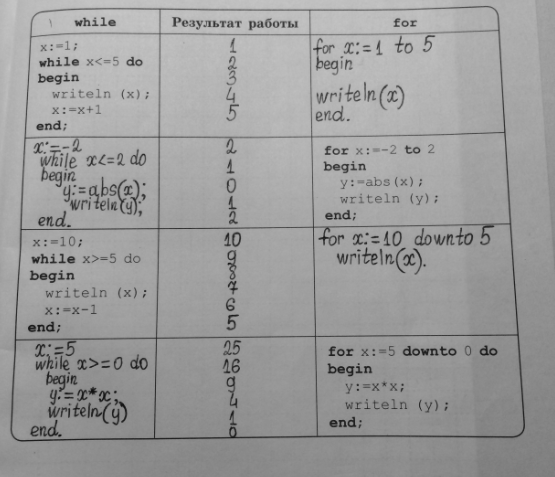 while Результат работы for
x:=1;
while x<=5 do
begin
writeln (x);
x:=x+1
end;
1
2
3
4
5
for x:=1 to 5
begin
writeln(x)
end.
x:=-2
while x<=2 do
begin
y:=abs(x);
writeln(y);
end.
2
1
0
1
2
for x:=-2 to 2
begin
y:=abs(x);
writeln (y);
end;
x:=10;
while x>=5 do
begin
writeln (x);
x:=x-1
end;
10
9
8
7
6
5
for x:=10 downto 5
writeln(x).
x:=5
while x>=0 do
begin
y:=x*x;
writeln(y)
end.
25
16
9
4
1
0
for x:=5 downto 0 do
begin
y:=x*x;
writeln (y);
end;